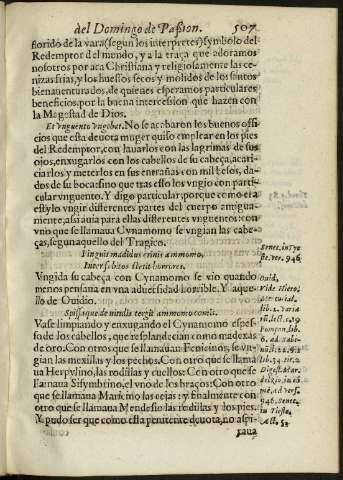 del Domingo de Passion. 507
florido de la vara (segun los interpretes) symbolo del
Redemptor del mundo, y a la traça que adoramos
nosotros por aca Christiana y religiosamente las ce-
nizas frias, y los huessos secos y molidos de los santos
bienauenturados, de quienes esperamos particulares
beneficios, por la buena intercession que hazen con
la Magestad de Dios.
Et vnguento vngebat. No se acabaron los buenos offi-
cios que esta deuota muger quiso emplear en los pies
del Redemptor, con lauarlos con las lagrimas de sus
ojos, enxugarlos con los cabellos de su cabeça, acari-
ciarlos y meterlos en sus entrañas con mil besos, da-
dos de su boca: sino que tras esso los vngio con parti-
cular vnguento. Y digo particular, porque como era
estylo vngir differentes partes del cuerpo antigua-
mente, assi auia para ellas differentes vnguentos: con
vno que se llamaua Cynamomo se vngian las cabe-
ças, segun aquello del Tragico.
Pinguis madidus crinis ammomo,
Inter subitos stetit horrores.
Vngida su cabeça con Cynamomo se vio quando
menos pensaua en vna aduersidad horrible. Y aque-
llo de Ouidio.
Spissaque de nitidis tergit ammomo comis.
Vase limpiando y enxugando el Cynamomo espes-
so de los cabellos, que resplandecian como madexas
de oro. Con otros que se llamauan Fenicino, se vn-
gian las mexillas y los pechos. Con otro que se llama
ua Herpulino, las rodillas y cuellos: Con otro que se
llamaua Sisymbrino, el vno de los braços: Con otro
que se llamaua Maricino las cejas: y finalmente con
otro que se llamaua Mendesio las rodillas y los pies.
Y pudo ser que como esta penitente deuota, no aspi-
raua
Senec. in Tye
ste. ver. 946.
Ouid.
lib. 2.
in Tieste.